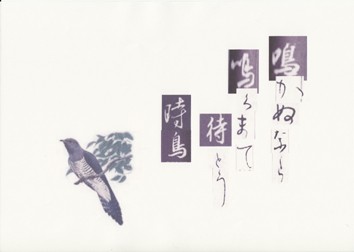 鳴かぬなら
鳴くまて
待とう
時鳥